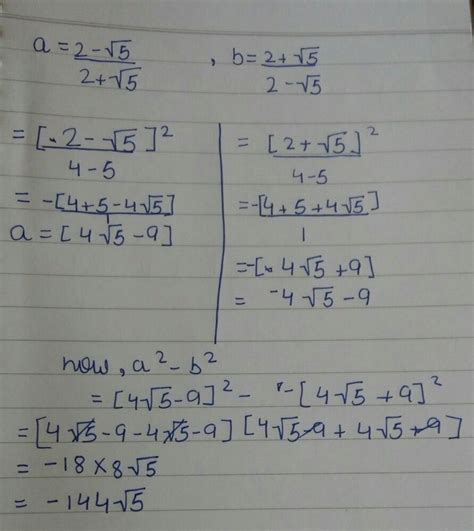 a = 2-√5 / 2+√5 , b = 2+√5 / 2-√5
= [2-√5]² / 4-5
= -[4+5-4√5] / 1
a = [4√5-9]
= [2+√5]² / 4-5
= -[4+5+4√5] / 1
= -[4√5+9]
= -4√5-9
now, a²-b²
= [4√5-9]² - -[4√5+9]²
= [4√5-9-4√5-9] [4√5-9+4√5+9]
= -18×8√5
= -144√5